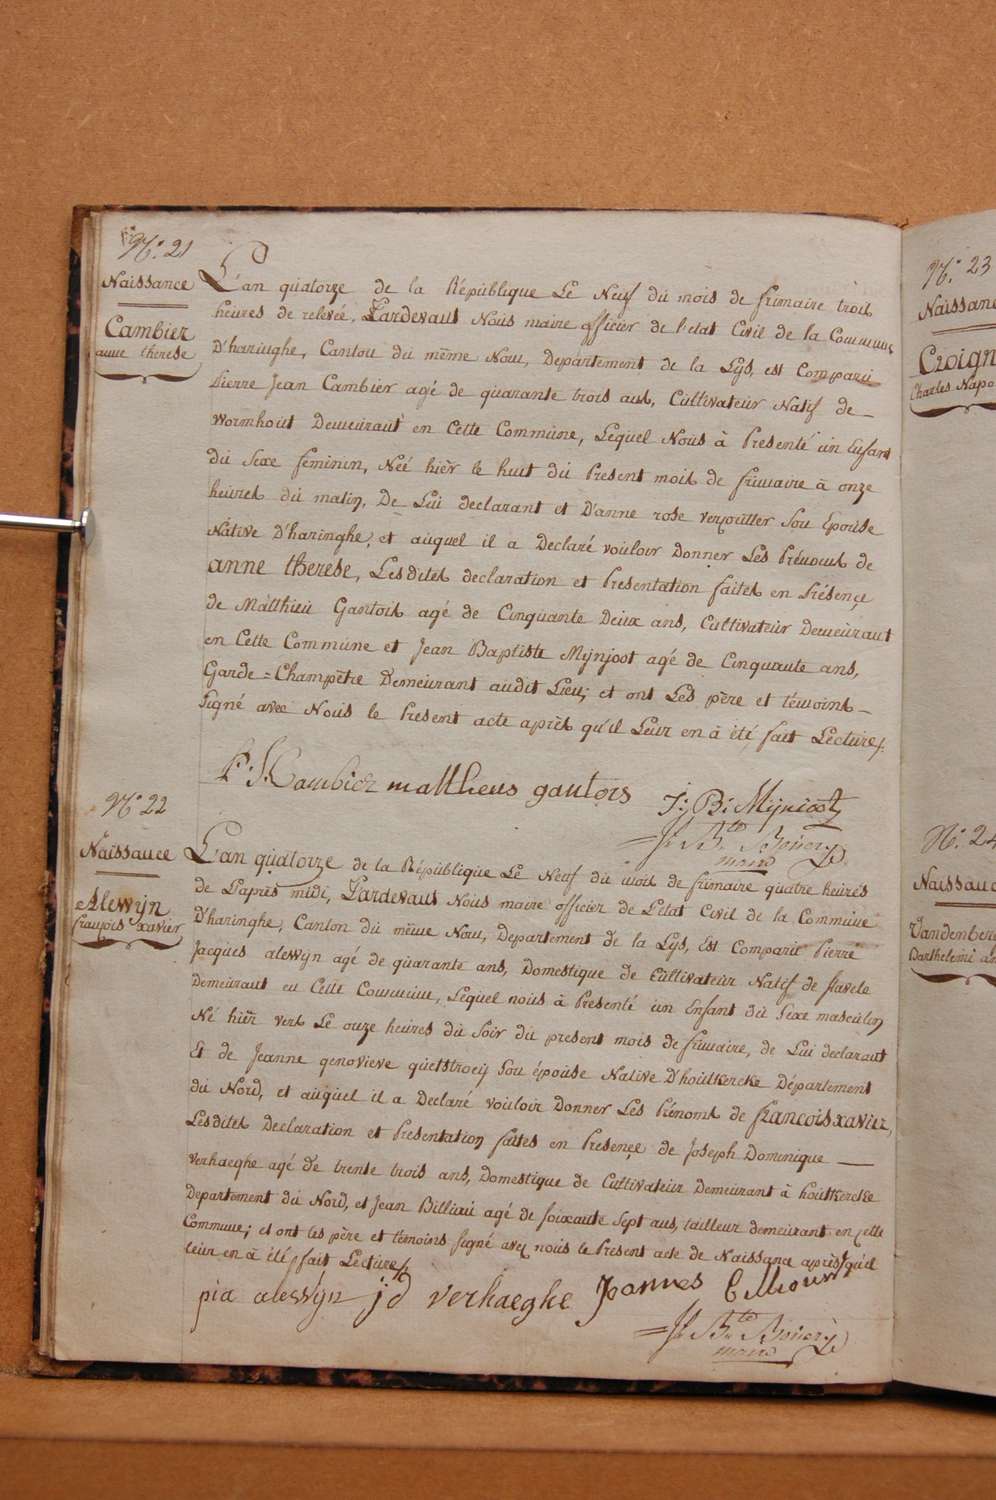 N.° 21
Naissance
Cambier
anne therese
L'an quatorze de la République Le Neuf du mois de frimaire trois
heures de relevée, Pardevant Nous maire officier de l'etat Civil de la Commune
D'haringhe, Canton du même Nom, Departement de la Lys, est Comparu
Pierre Jean Cambier agé de quarante trois ans, Cultivateur Natif de
Wormhout Demeurant en Cette Commune, Lequel Nous à Presenté un Enfant
du Sexe feminin, Néé hier le huit du Present mois de frimaire à onze
heures du matin, De Lui declarant et D'anne rose verpoütter Sou Epouse
Native D'haringhe, et auquel il a Declaré vouloir Donner Les Prénoms de
anne therese, Lesdites declaration et Presentation faites en Présençe
de Matthieu Gantois agé de Cinquante Deux ans, Cultivateur Demeurant
en Cette Commune et Jean Baptiste Mijnjoot agé de Cinquante ans,
Garde=Champêtre Demeurant audit Lieu; et ont Les père et témoins
Signé avec Nous le Present acte après qu'il Leur en à été fait Lecture.
P: J: Cambier mattheus gantois J: B: Mijnioot
J. Bte
maire
N.° 22
Naissance
Alewijn
françois xavier
L'an quatorze de la République Le Neuf du mois de frimaire quatre heures
de L'aprés midi, Pardevant Nous maire officier de L'etat Civil de la Commune
D'haringhe, Canton du même Nom, Departement de la Lys, Est Comparu Pierre
Jacques alewijn agé de quarante ans, Domestique de Cultivateur Natif de stavele
Demeurant en Cette Commune, Lequel nous à Presenté un Enfant du Sexe masculin
Né hier vers Le onze heures du Soir du present mois de frimaire, de Lui declarant
Et de Jeanne genovieve quetstroeij Sou épouse Native D'houtkercke Département
du Nord, et auquel il a Declaré vouloir Donner Les Prénoms de françois xavier,
Lesdites Declaration et Presentation faites en Presençe de Joseph Dominique
verhaeghe agé de trente trois ans, Domestique de Cultivateur Demeurant à houtkercke
Departement du Nord, et Jean Billiau agé de soixante Sept ans, tailleur demeurant en cette
Commune; et ont les père et témoins signé avec nous le Present acte de Naissance après qu'il
leur en à été fait Lecture.
pia alewijn j d verhaeghe Joannes
J. Bte
maire
N.° 23
Naissanc
Croign
Charles Napo
N.° 24
Naissanc
Vandenber
Barthelemi an